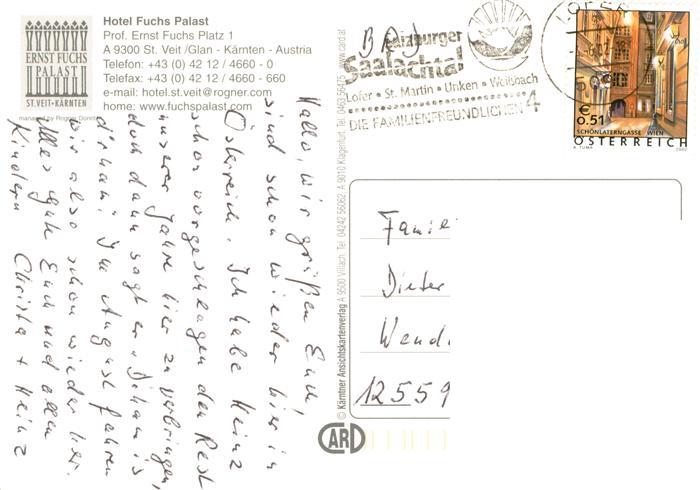 Hotel Fuchs Palast
Prof. Ernst Fuchs Platz 1
A 9300 St. Veit /Glan - Kärnten - Austria
Telefon: +43 (0) 42 12 / 4660 - 0
Telefax: +43 (0) 42 12 / 4660 - 660
e-mail: hotel.st.veit@rogner.com
home: www.fuchspalast.com
ERNST FUCHS
PALAST
ST.VEIT·KÄRNTEN
managed by Rogner
Hallo, wir grüßen Euch,
sind schon wieder hier in
Österreich. Ich habe Heinz
schon vorgeschlagen den Rest
unserer Jahre hier zu verbringen,
doch dann sagt er "Diham is
diham". Im August fahren
wir also schon wieder her.
Alles Gute Euch und allen
Kindern Christa + Heinz
© Kärntner Ansichtskartenverlag A 9500 Villach, Tel. 04242 56062, A 9010 Klagenfurt, Tel. www.card.at
CARD
BRD
Salzburger
Saalachtal
Lofer • St. Martin • Unken • Weißbach
DIE FAMILIENFREUNDLICHEN 4
LOFER
€
0.51
SCHÖNLATERNGASSE WIEN
ÖSTERREICH
A. TUMA 2002
Familie
Dieter
Wend
12559